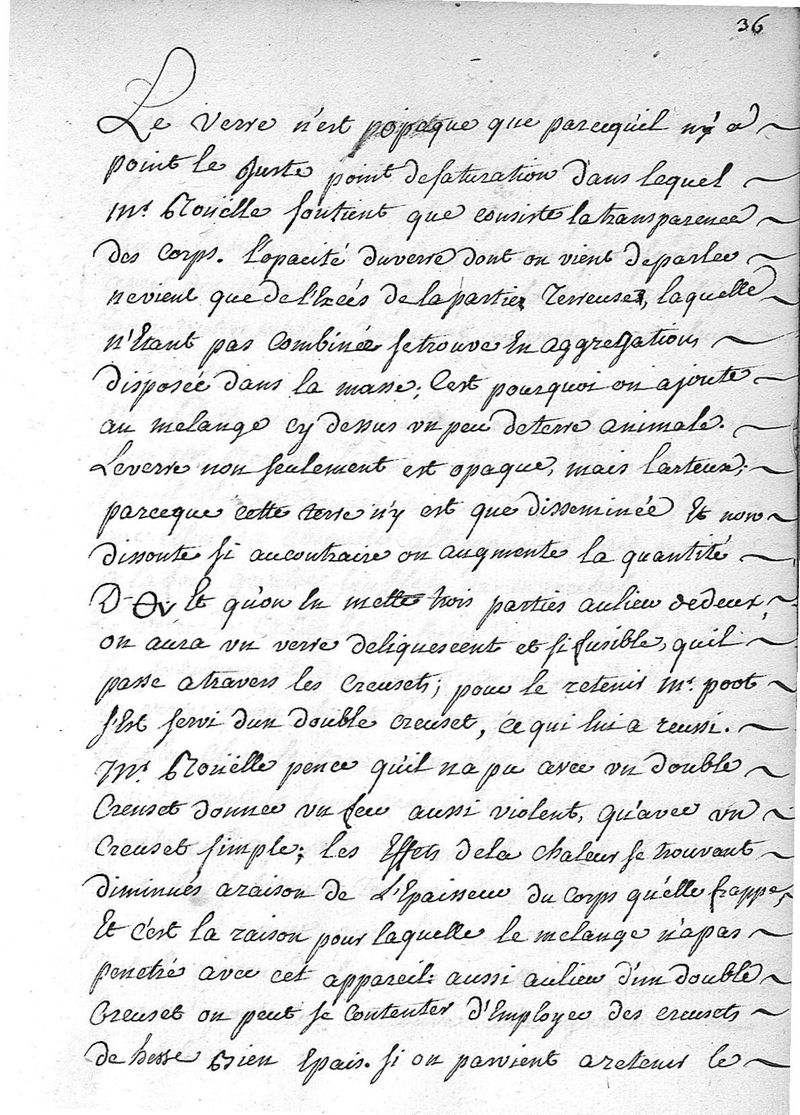 36
Le verre n'est opaque que parcequ'il n'y a
point le juste point de saturation dans lequel
Mr. Roüelle soutient que consiste la transparence
des corps. l'opacité du verre dont on vient de parler
ne vient que de l'Excés de la partie Terreuse, laquelle
n'Etant pas Combinée se trouve En aggregations
disposée dans la masse; C'est pourquoi on ajoute
au melange cy dessus un peu de terre animale.
Le verre non seulement est opaque, mais laiteux;
parceque cette terre n'y est que disseminée Et non
dissoute si au contraire on augmente la quantité
Et qu'on En mette trois parties au lieu de deux,
on aura un verre deliquescent et si fusible, qu'il
passe a travers les Creusets; pour le retenir Mr. poot
s'Est servi d'un double creuset, ce qui lui a reussi.
Mr. Roüelle pence qu'il n'a pu avec un double
Creuset donner un feu aussi violent, qu'avec un
Creuset simple; les Effets de la chaleur se trouvant
diminués a raison de L'Epaisseur du Corps qu'elle frappe,
Et c'est la raison pour laquelle le melange n'a pas
penetré avec cet appareil: aussi au lieu d'un double
Creuset on peut se Contenter d'Employer des creusets
de hesse Bien Epais. si on parvient a retenir le